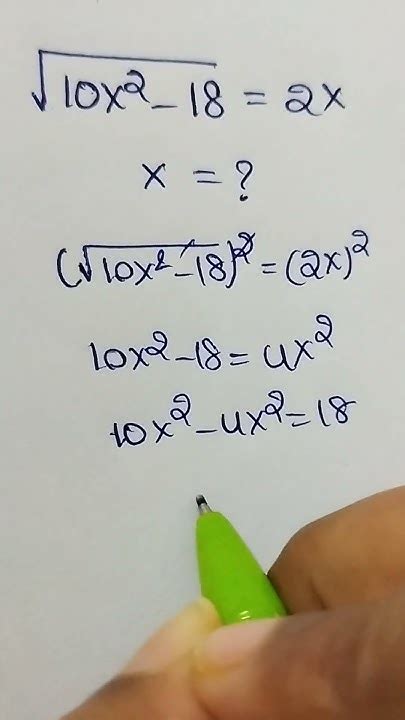 √10x² - 18 = 2x
x = ?
(√10x² - 18)² = (2x)²
10x² - 18 = 4x²
10x² - 4x² = 18